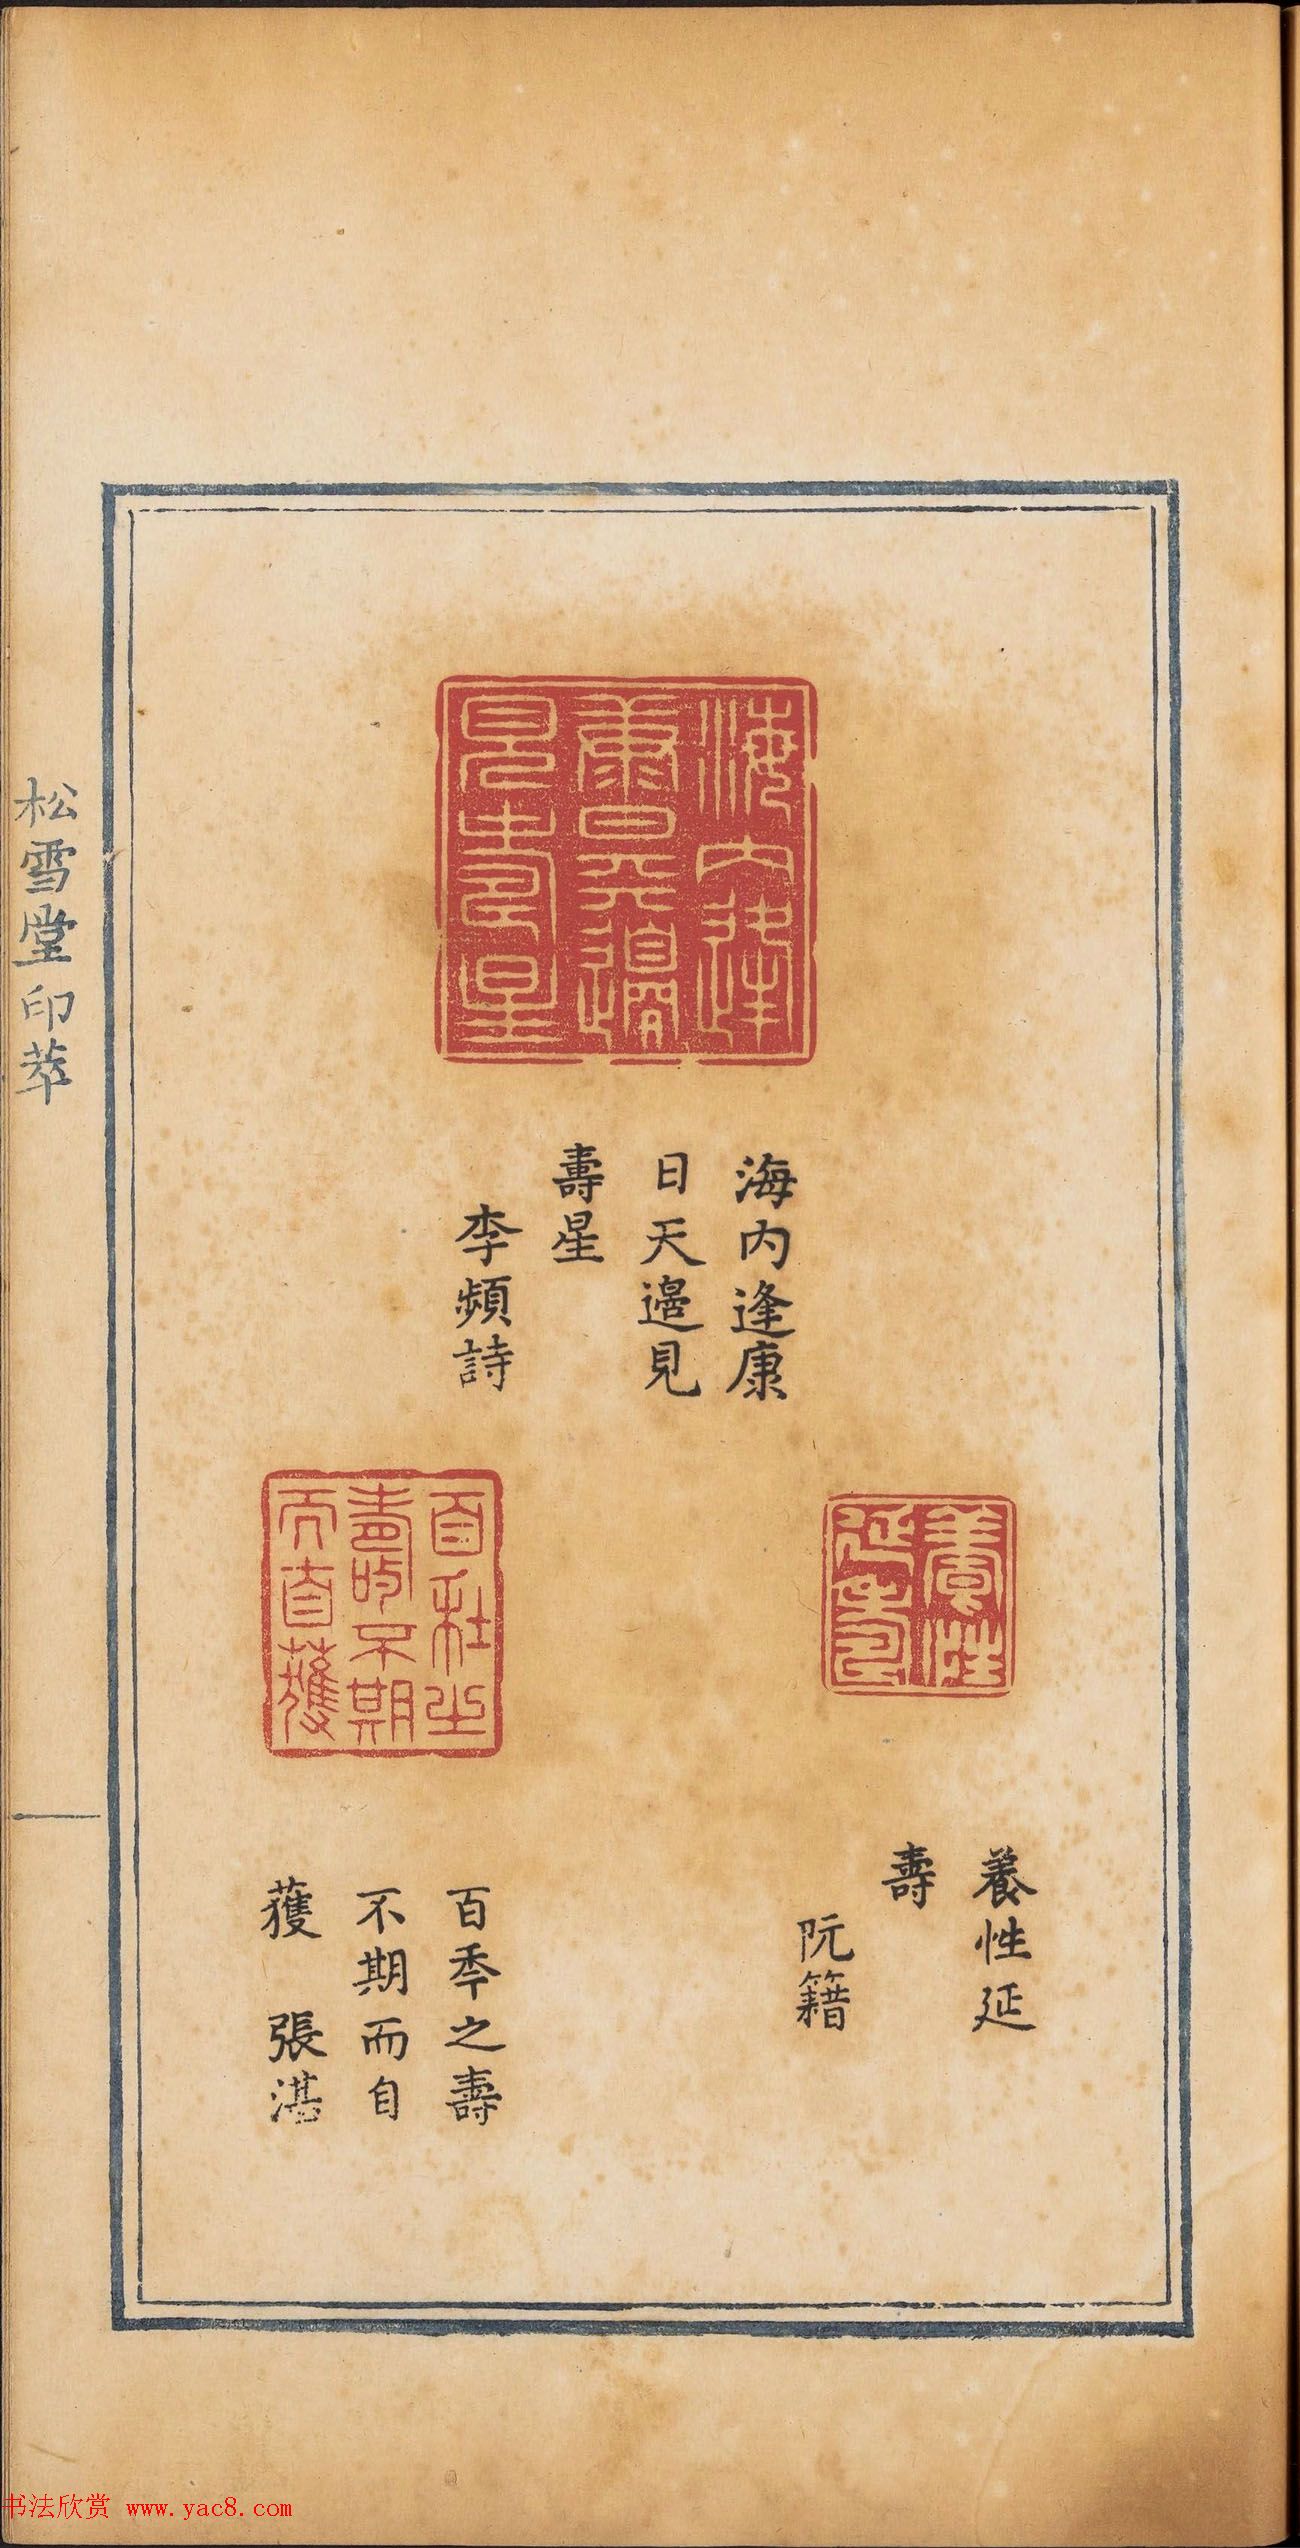 海內逢
康日天邊
見壽星
海内逢康
日天邉見
壽星
李頻詩
養性
延壽
養性延
壽
阮籍
百秊之
壽不期
而自蒦
百秊之壽
不期而自
蒦 張湛
松雪堂印萃
书法欣赏 www.yac8.com